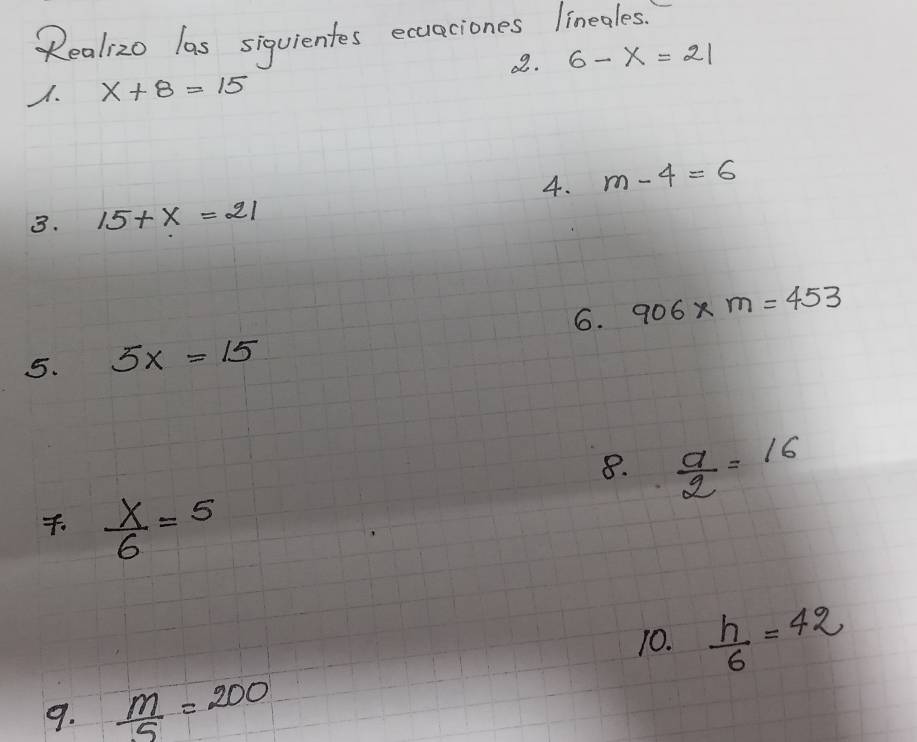 Realizo las siguientes ecuaciones lineales.
1. x + 8 = 15
2. 6 - x = 21
3. 15 + x = 21
4. m - 4 = 6
5. 5x = 15
6. 906 x m = 453
7. x/6 = 5
8. a/2 = 16
9. m/5 = 200
10. h/6 = 42